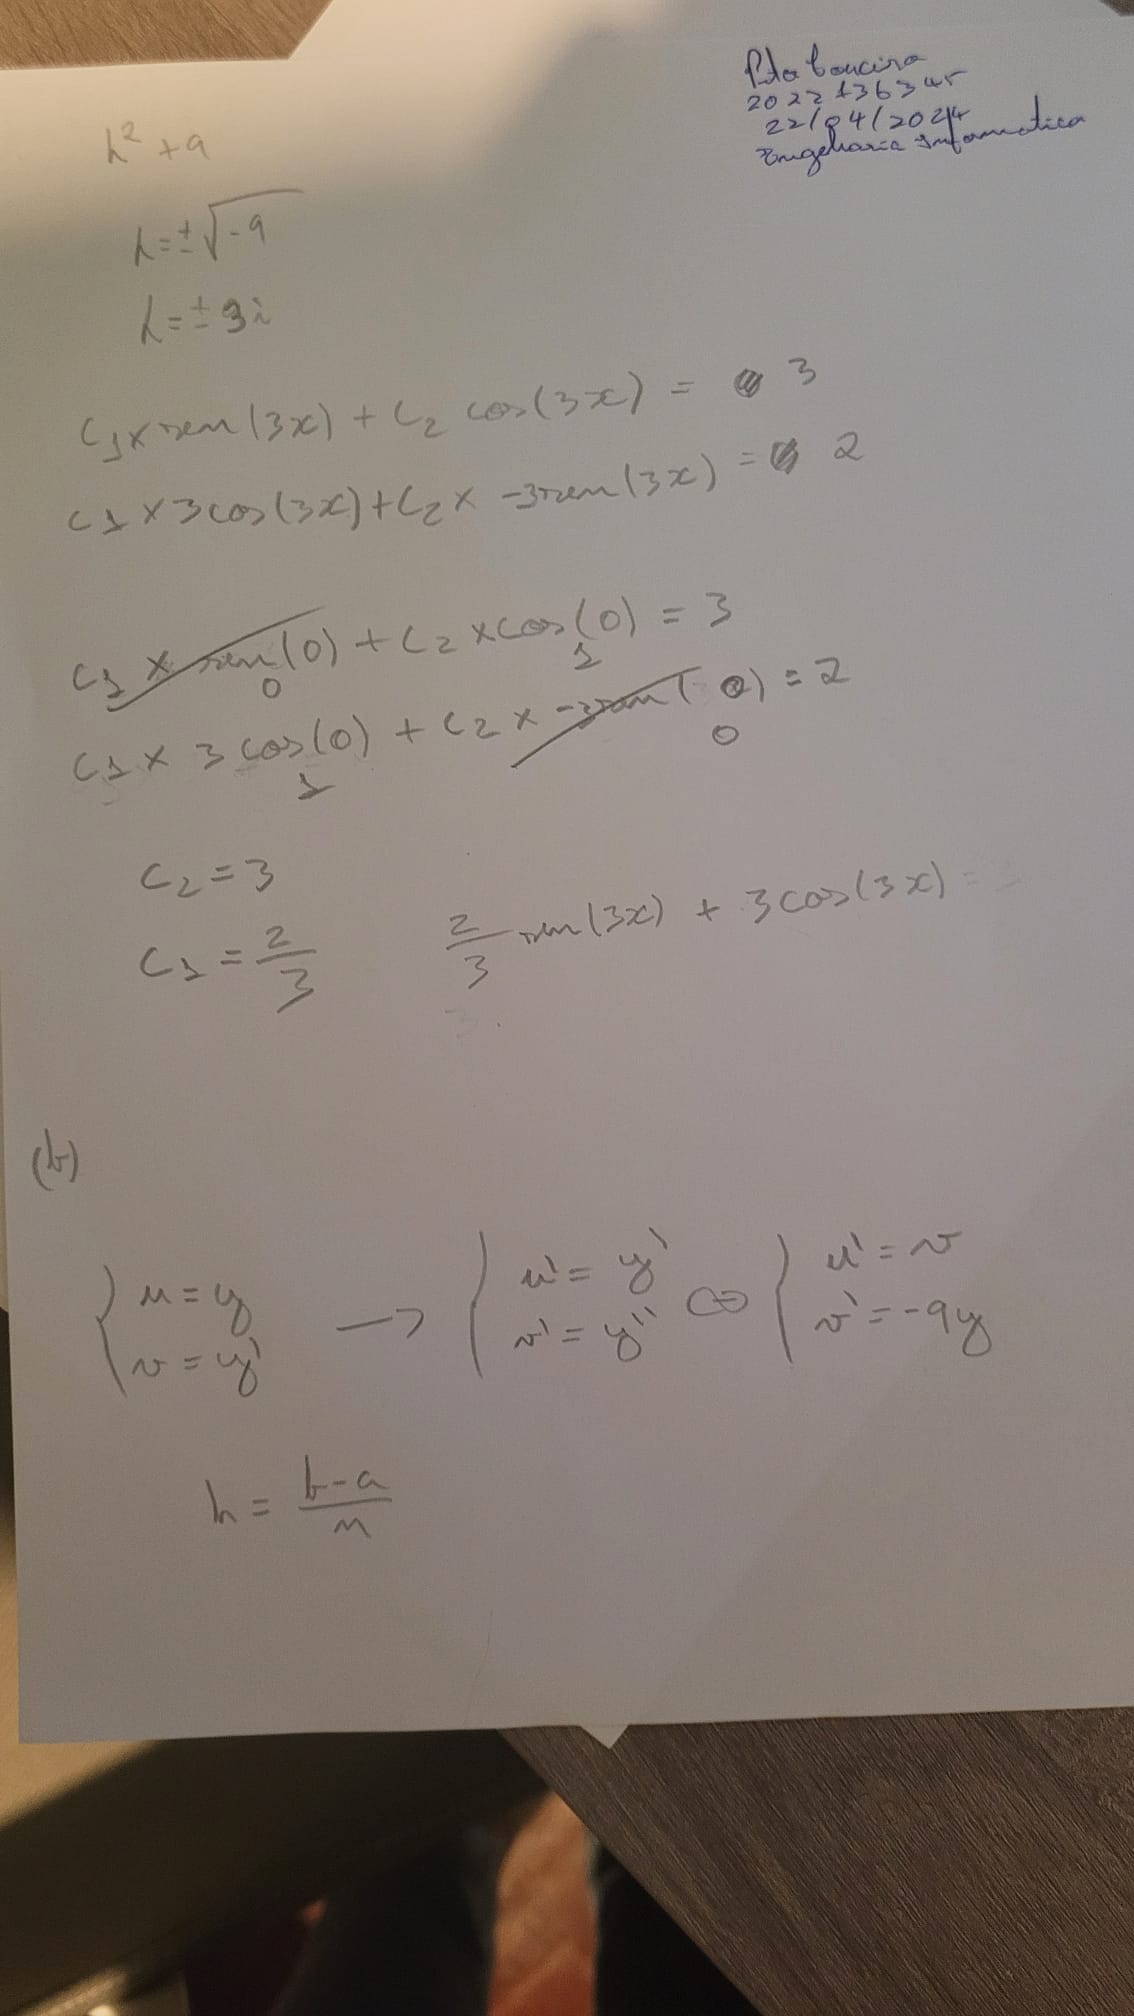 2022136345
22/04/2024
Engenharia Informatica
λ² + 9
λ = ±√-9
λ = ± 3i
C1 x sen(3x) + C2 cos(3x) = 3
C1 x 3cos(3x) + C2 x -3sen(3x) = 2
C1 x sen(0) + C2 x cos(0) = 3
0 1
C1 x 3 cos(0) + C2 x -3sen(0) = 2
1 0
C2 = 3
C1 = 2/3 2/3 sen(3x) + 3cos(3x)
(b)
{ u = y → { u' = y' ⇔ { u' = v
v = y' v' = y'' v' = -9y
h = b-a/n